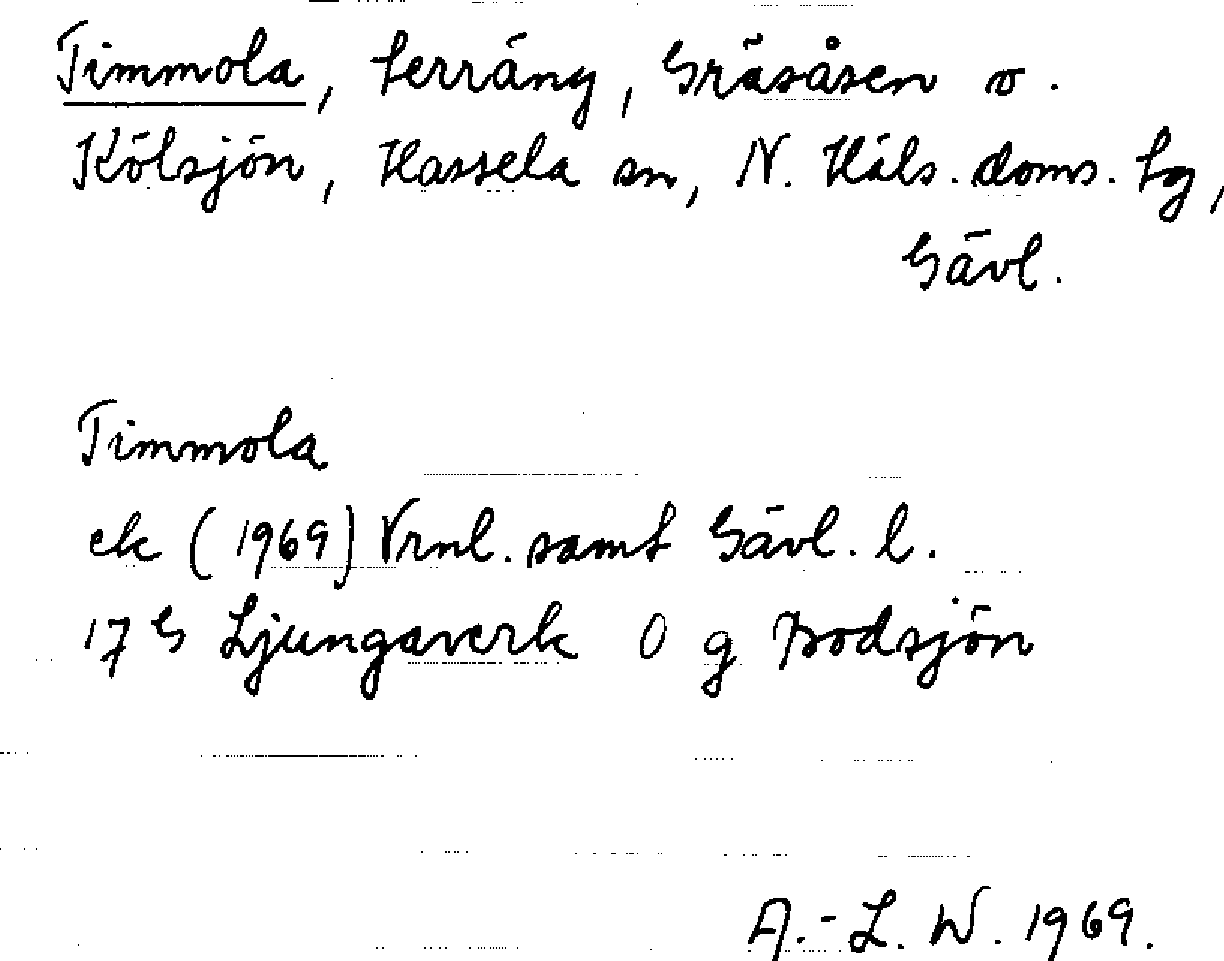 Timmola, terräng, Gräsåsen o.
Kölsjön, Hassela sn, N. Häls. doms. tg,
Gävl.
Timmola
ek (1969) Vrnl. samt Gävl. l.
17 G Ljungaverk 0 g Bodsjön
A.-L. W. 1969.